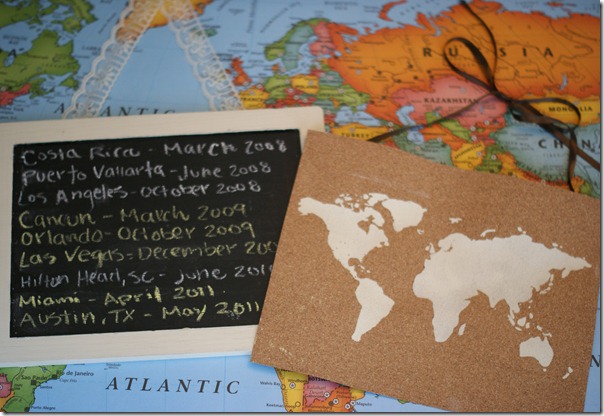 RUSSIA
KAZAKHSTAN
MONGOLIA
CHIN
TURKEY
ATLANTIC
Costa Rica - March 2008
Puerto Vallarta - June 2008
Los Angeles - October 2008
Cancun - March 2009
Orlando - October 2009
Las Vegas - December 200
Hilton Head, SC - June 201
Miami - April 2011
Austin, TX - May 2011
Rio de Janeiro
ATLANTIC